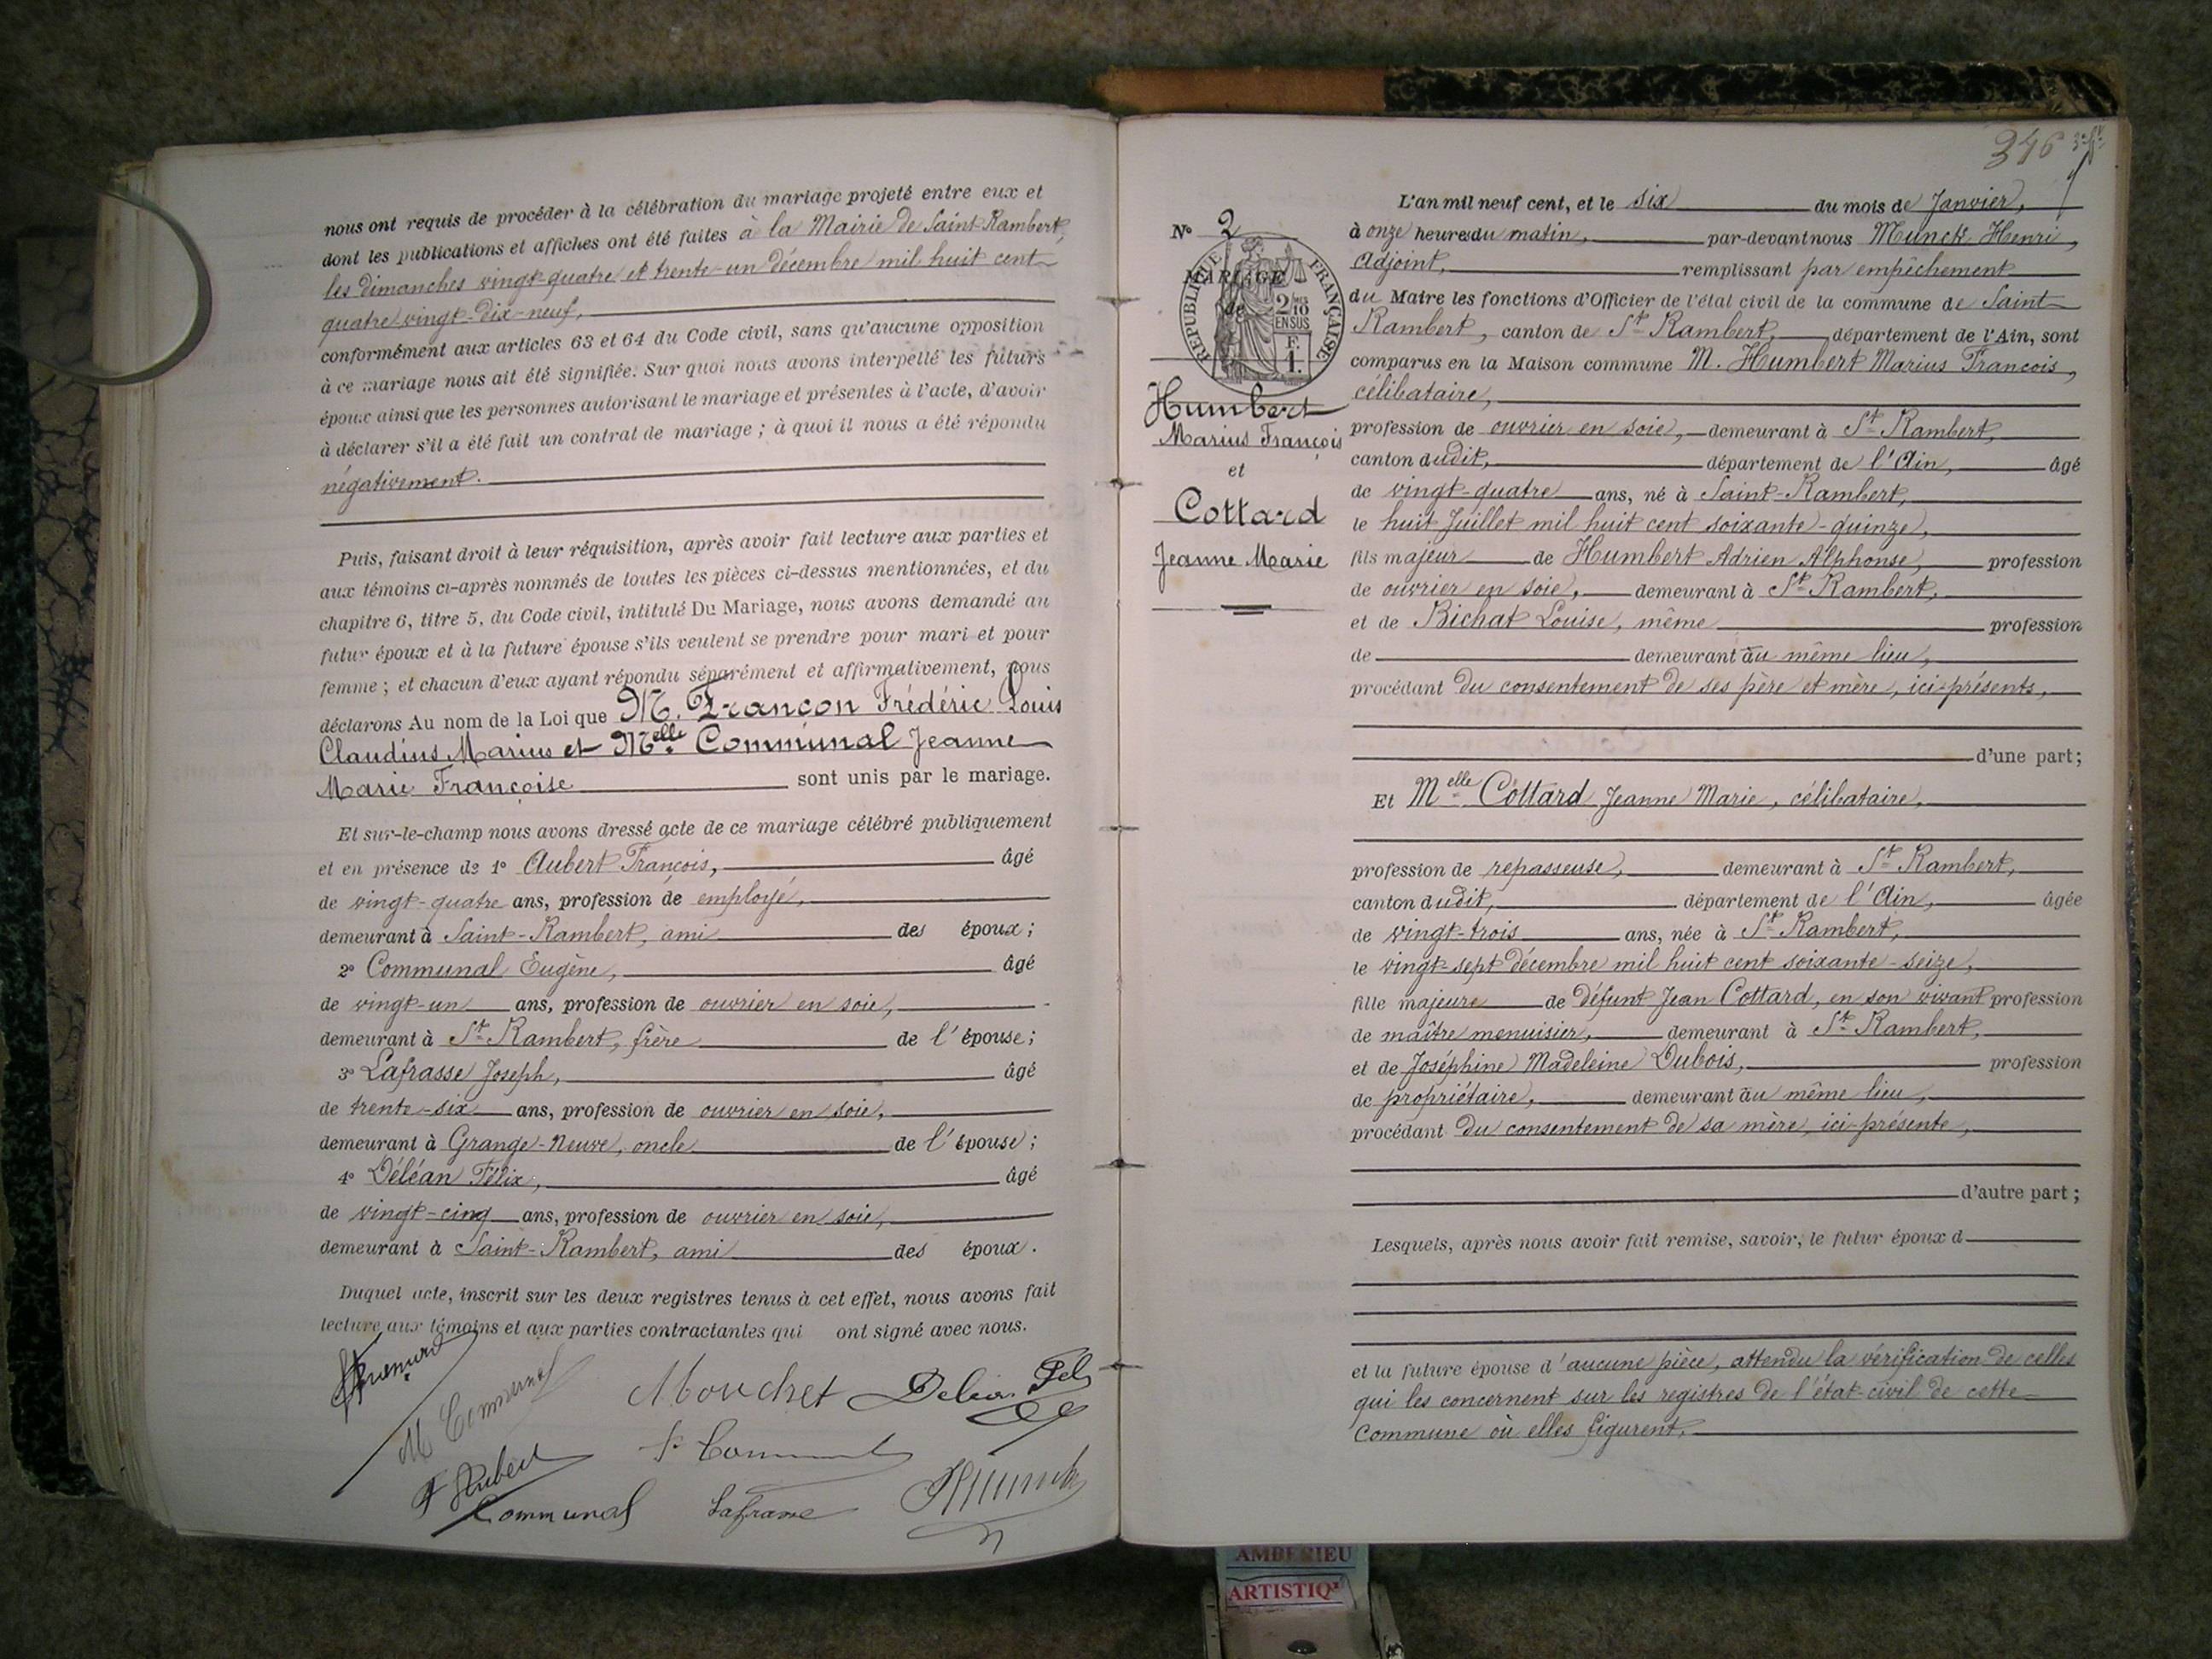 nous ont requis de procéder à la célébration du mariage projeté entre eux et
dont les publications et affiches ont été faites à la Mairie de Saint-Rambert,
les dimanches vingt-quatre et trente-un décembre mil huit cent
quatre vingt-dix-neuf,
conformément aux articles 63 et 64 du Code civil, sans qu'aucune opposition
à ce mariage nous ait été signifiée. Sur quoi nous avons interpellé les futurs
époux ainsi que les personnes autorisant le mariage et présentes à l'acte, d'avoir
à déclarer s'il a été fait un contrat de mariage ; à quoi il nous a été répondu
négativement.
Puis, faisant droit à leur réquisition, après avoir fait lecture aux parties et
aux témoins ci-après nommés de toutes les pièces ci-dessus mentionnées, et du
chapitre 6, titre 5, du Code civil, intitulé Du Mariage, nous avons demandé au
futur époux et à la future épouse s'ils veulent se prendre pour mari et pour
femme ; et chacun d'eux ayant répondu séparément et affirmativement, nous
déclarons Au nom de la Loi que M. Françon Frédéric Louis
Claudius Marius et Melle Communal Jeanne
Marie Françoise sont unis par le mariage.
Et sur-le-champ nous avons dressé acte de ce mariage célébré publiquement
et en présence de 1° Aubert François, âgé
de vingt-quatre ans, profession de employé,
demeurant à Saint-Rambert, ami des époux ;
2° Communal Eugène, âgé
de vingt-un ans, profession de ouvrier en soie,
demeurant à St Rambert, frère de l'épouse ;
3° Lafrasse Joseph, âgé
de trente-six ans, profession de ouvrier en soie,
demeurant à Grange-Neuve, oncle de l'épouse ;
4° Déléan Félix, âgé
de vingt-cinq ans, profession de ouvrier en soie,
demeurant à Saint-Rambert, ami des époux.
Duquel acte, inscrit sur les deux registres tenus à cet effet, nous avons fait
lecture aux témoins et aux parties contractantes qui ont signé avec nous.
M Communal
Mouchet
F Aubert
Communal
Lafrasse
HMunck
346
N° 2
RÉPUBLIQUE FRANÇAISE
2/10 EN SUS
F. 1.
MARIAGE
de
Humbert
Marius François
et
Cottard
Jeanne Marie
L'an mil neuf cent, et le six du mois de Janvier,
à onze heures du matin, par-devant nous Munck Henri,
Adjoint, remplissant par empêchement
du Maire les fonctions d'Officier de l'état civil de la commune de Saint-
Rambert, canton de St Rambert, département de l'Ain, sont
comparus en la Maison commune M. Humbert Marius François,
célibataire,
profession de ouvrier en soie, demeurant à St Rambert,
canton dudit, département de l'Ain, âgé
de vingt-quatre ans, né à Saint-Rambert,
le huit Juillet mil huit cent soixante-quinze,
fils majeur de Humbert Adrien Alphonse, profession
de ouvrier en soie, demeurant à St Rambert,
et de Bichat Louise, même profession
de demeurant au même lieu,
procédant du consentement de ses père et mère, ici-présents,
d'une part ;
Et Melle Cottard Jeanne Marie, célibataire,
profession de repasseuse, demeurant à St Rambert,
canton dudit, département de l'Ain, âgée
de vingt-trois ans, née à St Rambert,
le vingt-sept décembre mil huit cent soixante-seize,
fille majeure de défunt Jean Cottard, en son vivant profession
de maître menuisier, demeurant à St Rambert,
et de Joséphine Madeleine Dubois, profession
de propriétaire, demeurant au même lieu,
procédant du consentement de sa mère, ici-présente,
d'autre part ;
Lesquels, après nous avoir fait remise, savoir, le futur époux d
et la future épouse d'aucune pièce, attendu la vérification de celles
qui les concernent sur les registres de l'état-civil de cette
Commune où elles figurent.
AMBERIEU
ARTISTIQ